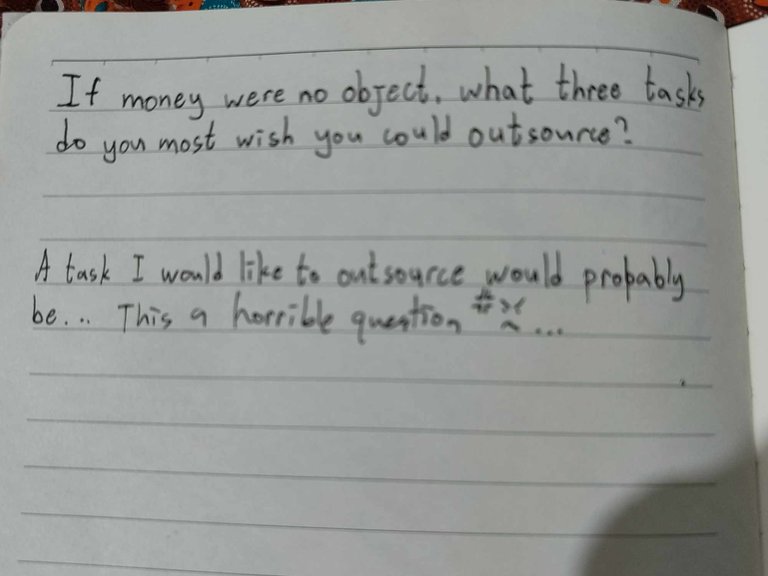 If money were no object, what three tasks
do you most wish you could outsource?
A task I would like to outsource would probably
be... This a horrible question ...